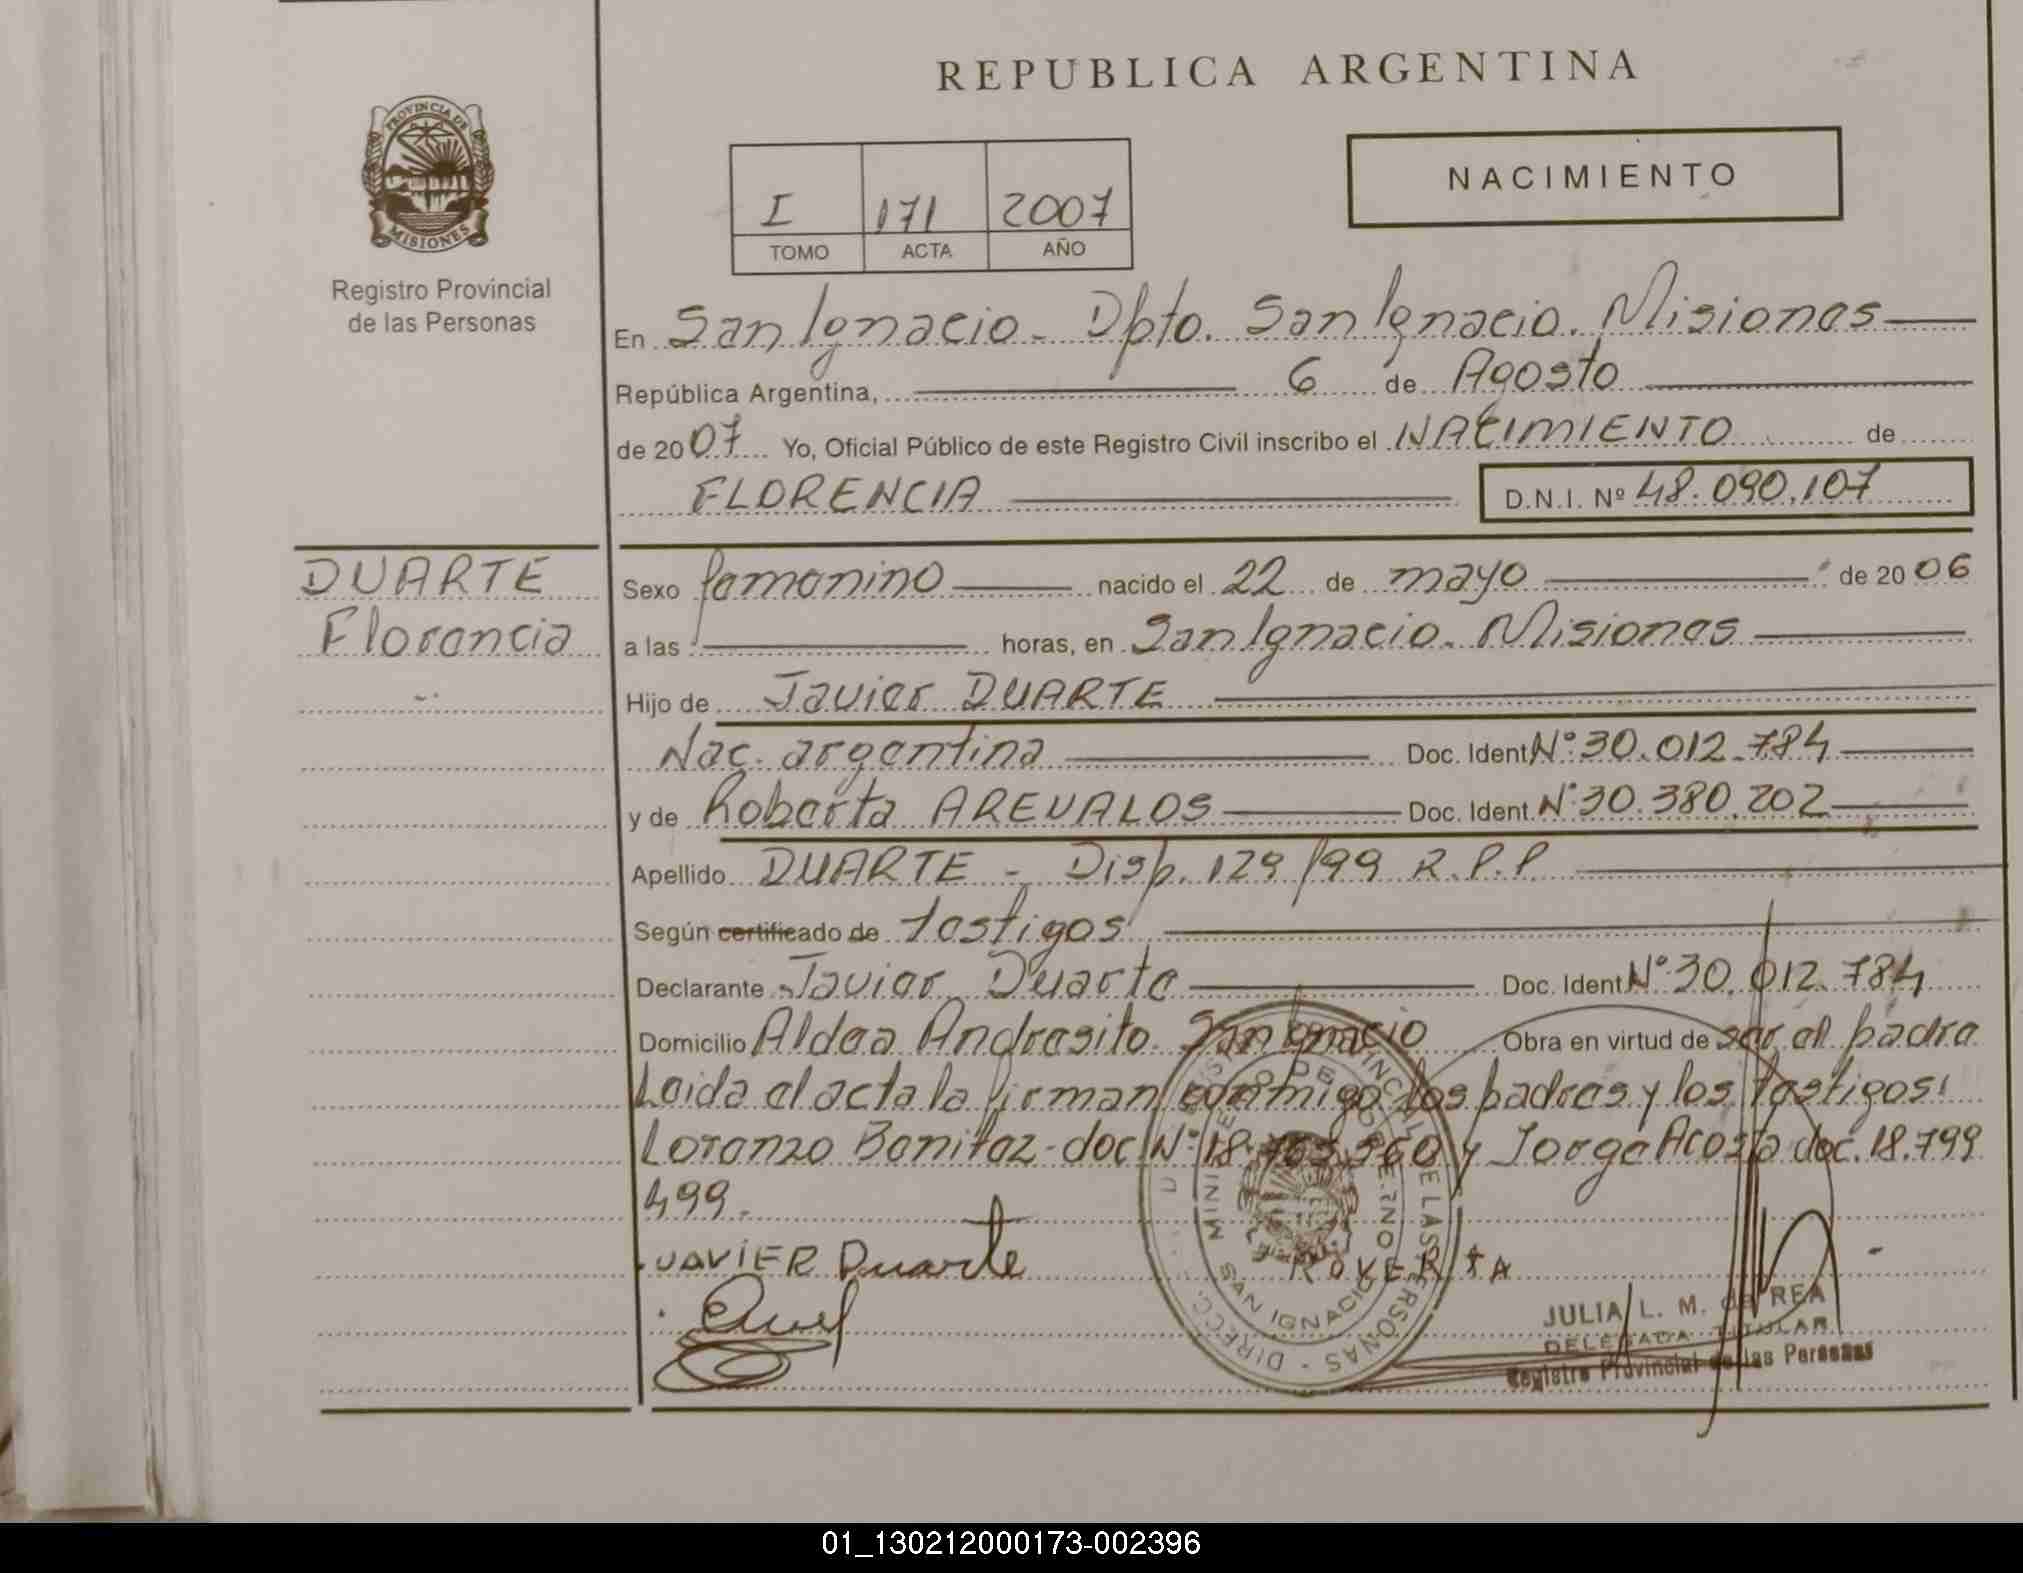 REPUBLICA ARGENTINA
PROVINCIA DE
MISIONES
Registro Provincial
de las Personas
I 171 2007
TOMO ACTA AÑO
NACIMIENTO
En San Ignacio - Dpto. San Ignacio. Misiones
República Argentina, 6 de Agosto
de 2007 Yo, Oficial Público de este Registro Civil inscribo el NACIMIENTO de
FLORENCIA D.N.I. Nº 48.090.107
DUARTE
Florencia
Sexo femenino nacido el 22 de mayo de 2006
a las horas, en San Ignacio. Misiones
Hijo de Javier DUARTE
Nac. argentina Doc. Ident Nº 30.012.784
y de Roberta AREVALOS Doc. Ident. Nº 30.380.202
Apellido DUARTE - Disp. 129/99 R.P.P
Según certificado de testigos
Declarante Javier Duarte Doc. Ident Nº 30.012.784
Domicilio Aldea Andresito. San Ignacio Obra en virtud de ser el padre
Leida el acta la firman conmigo los padres y los testigos:
Lorenzo Benitez - doc Nº 18. y Jorge Acosta doc. 18.799
499.
JAVIER Duarte
ROVERTA
SAN IGNACIO
JULIA L. M. de REA
DELEGADA TITULAR
Registro Provincial de las Personas
01_130212000173-002396